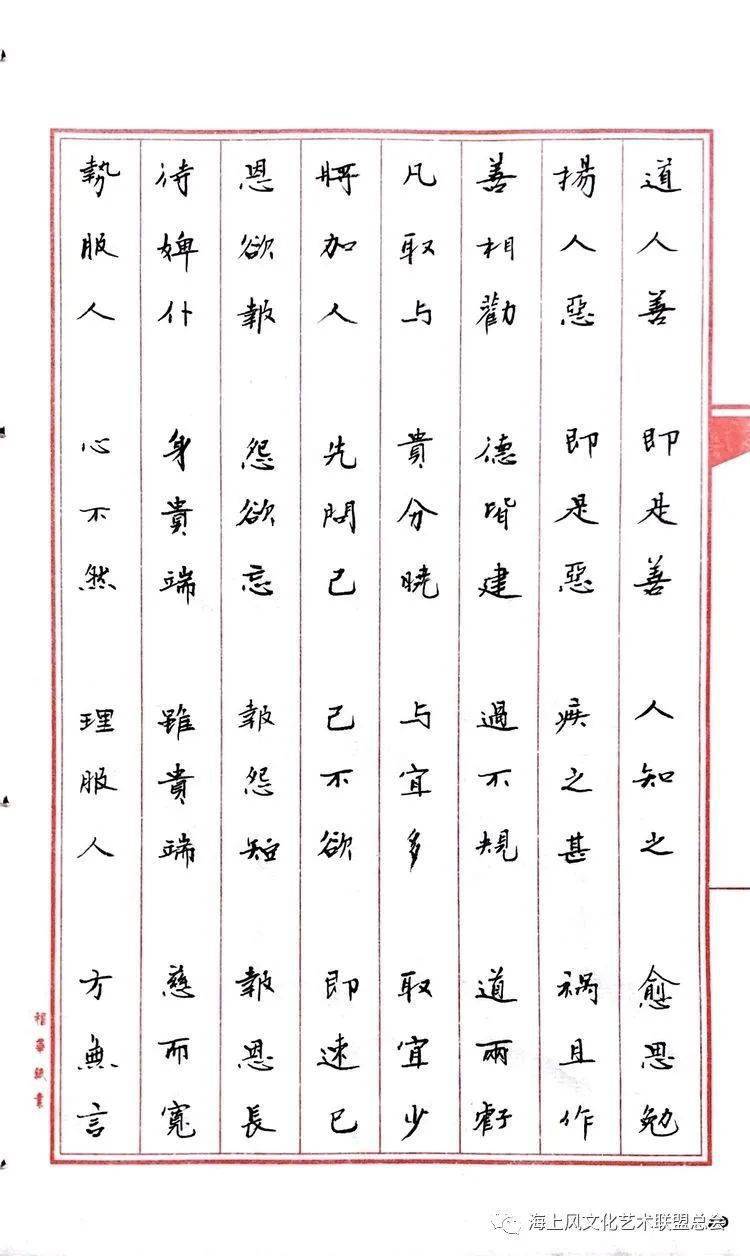 道人善 即是善 人知之 愈思勉
揚人惡 即是惡 疾之甚 禍且作
善相勸 德皆建 過不規 道兩虧
凡取与 貴分曉 与宜多 取宜少
將加人 先問己 己不欲 即速已
恩欲報 怨欲忘 報怨短 報恩長
待婢仆 身貴端 雖貴端 慈而寬
勢服人 心不然 理服人 方無言
海上风文化艺术联盟总会